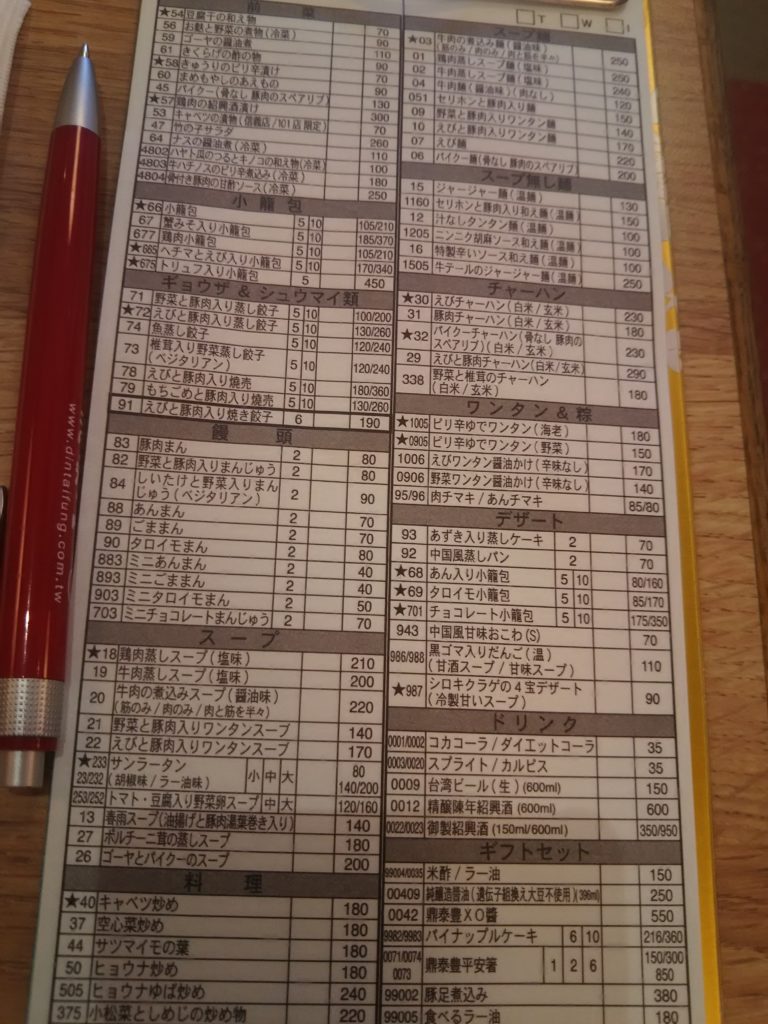 前 菜
★54 豆腐干の和え物 70
56 お麩と野菜の煮物(冷菜) 90
59 ゴーヤの醤油煮 110
61 きくらげの酢の物 90
★58 きゅうりのピリ辛漬け 90
60 まめもやしのあえもの
45 パイクー(骨なし 豚肉のスペアリブ) 130
★57 鶏肉の紹興酒漬け 300
53 キャベツの漬物(信義店/101店 限定) 70
47 竹の子サラダ 260
64 ナスの醤油煮(冷菜) 110
4802 ハヤト瓜のつるとキノコの和え物(冷菜) 100
4803 牛ハチノスのピリ辛煮込み(冷菜) 180
4804 骨付き豚肉の甘酢ソース(冷菜) 250
小 龍 包
★66 小籠包 5 10 105/210
67 蟹みそ入り小籠包 5 10 185/370
677 鶏肉小籠包 5 10 105/210
★665 ヘチマとえび入り小籠包 5 10 170/340
★675 トリュフ入り小籠包 5 450
ギョウザ & シュウマイ類
71 野菜と豚肉入り蒸し餃子 5 10 100/200
★72 えびと豚肉入り蒸し餃子 5 10 130/260
74 魚蒸し餃子 5 10 120/240
73 椎茸入り野菜蒸し餃子(ベジタリアン) 5 10 120/240
78 えびと豚肉入り焼売 5 10 180/360
79 もちごめと豚肉入り焼売 5 10 130/260
91 えびと豚肉入り焼き餃子 6 190
饅 頭
83 豚肉まん 2 80
82 野菜と豚肉入りまんじゅう 2 80
84 しいたけと野菜入りまんじゅう(ベジタリアン) 2 90
88 あんまん 2 70
89 ごままん 2 70
90 タロイモまん 2 80
883 ミニあんまん 2 40
893 ミニごままん 2 40
903 ミニタロイモまん 2 50
703 ミニチョコレートまんじゅう 2 70
ス ー プ
★18 鶏肉蒸しスープ(塩味) 210
19 牛肉蒸しスープ(塩味) 200
20 牛肉の煮込みスープ(醤油味)(筋のみ/肉のみ/肉と筋を半々) 220
21 野菜と豚肉入りワンタンスープ 140
22 えびと豚肉入りワンタンスープ 170
★233 23/232 サンラータン(胡椒味/ラー油味) 小 中 大 80 140/200
253/252 トマト・豆腐入り野菜卵スープ 中 大 120/160
13 春雨スープ(油揚げと豚肉湯葉巻き入り) 140
27 ポルチーニ茸の蒸しスープ 180
26 ゴーヤとパイクーのスープ 200
料 理
★40 キャベツ炒め 180
37 空心菜炒め 180
44 サツマイモの葉 180
50 ヒョウナ炒め 180
505 ヒョウナゆば炒め 240
375 小松菜としめじの炒め物 220
T W I
スープ麺
★03 牛肉の煮込み麺(醤油味)(筋のみ/肉のみ/肉と筋を半々) 250
01 鶏肉蒸しスープ麺(塩味)
02 牛肉蒸しスープ麺(塩味) 240
04 牛肉麺(醤油味)(肉なし) 120
051 セリホンと豚肉入り麺 150
09 野菜と豚肉入りワンタン麺 140
10 えびと豚肉入りワンタン麺 170
07 えび麺 220
06 パイクー麺(骨なし 豚肉のスペアリブ) 200
スープ無し麺
15 ジャージャー麺(温麺) 130
1160 セリホンと豚肉入り和え麺(温麺) 150
12 汁なしタンタン麺(温麺) 100
1205 ニンニク胡麻ソース和え麺(温麺) 100
16 特製辛いソース和え麺(温麺) 100
1505 牛テールのジャージャー麺(温麺) 250
チャーハン
★30 えびチャーハン(白米/玄米) 230
31 豚肉チャーハン(白米/玄米) 180
★32 パイクーチャーハン(骨なし 豚肉のスペアリブ)(白米/玄米) 230
29 えびと豚肉チャーハン(白米/玄米) 290
338 野菜と椎茸のチャーハン(白米/玄米) 180
ワンタン & 粽
★1005 ピリ辛ゆでワンタン(海老) 180
★0905 ピリ辛ゆでワンタン(野菜) 150
1006 えびワンタン醤油かけ(辛味なし) 170
0906 野菜ワンタン醤油かけ(辛味なし) 140
95/96 肉チマキ/あんチマキ 85/80
デザート
93 あずき入り蒸しケーキ 2 70
92 中国風蒸しパン 2 70
★68 あん入り小籠包 5 10 80/160
★69 タロイモ小籠包 5 10 85/170
★701 チョコレート小籠包 5 10 175/350
943 中国風甘味おこわ(S) 70
986/988 黒ゴマ入りだんご(温)(甘酒スープ/甘味スープ) 110
★987 シロキクラゲの4宝デザート(冷製甘いスープ) 90
ド リ ン ク
0001/0002 コカコーラ/ダイエットコーラ 35
0003/0020 スプライト/カルピス 35
0009 台湾ビール(生)(600ml) 150
0012 精醸陳年紹興酒(600ml) 600
0022/0023 御製紹興酒(150ml/600ml) 350/950
ギフトセット
99004/0035 米酢/ラー油 150
00409 純醸造醤油(遺伝子組換え大豆不使用)(396ml) 250
0042 鼎泰豊XO醬 550
9982/9983 パイナップルケーキ 6 10 216/360
0071/0074 0073 鼎泰豊平安箸 1 2 6 150/300 850
99002 豚足煮込み 380
99005 食べるラー油 180
www.dintaifung.com.tw